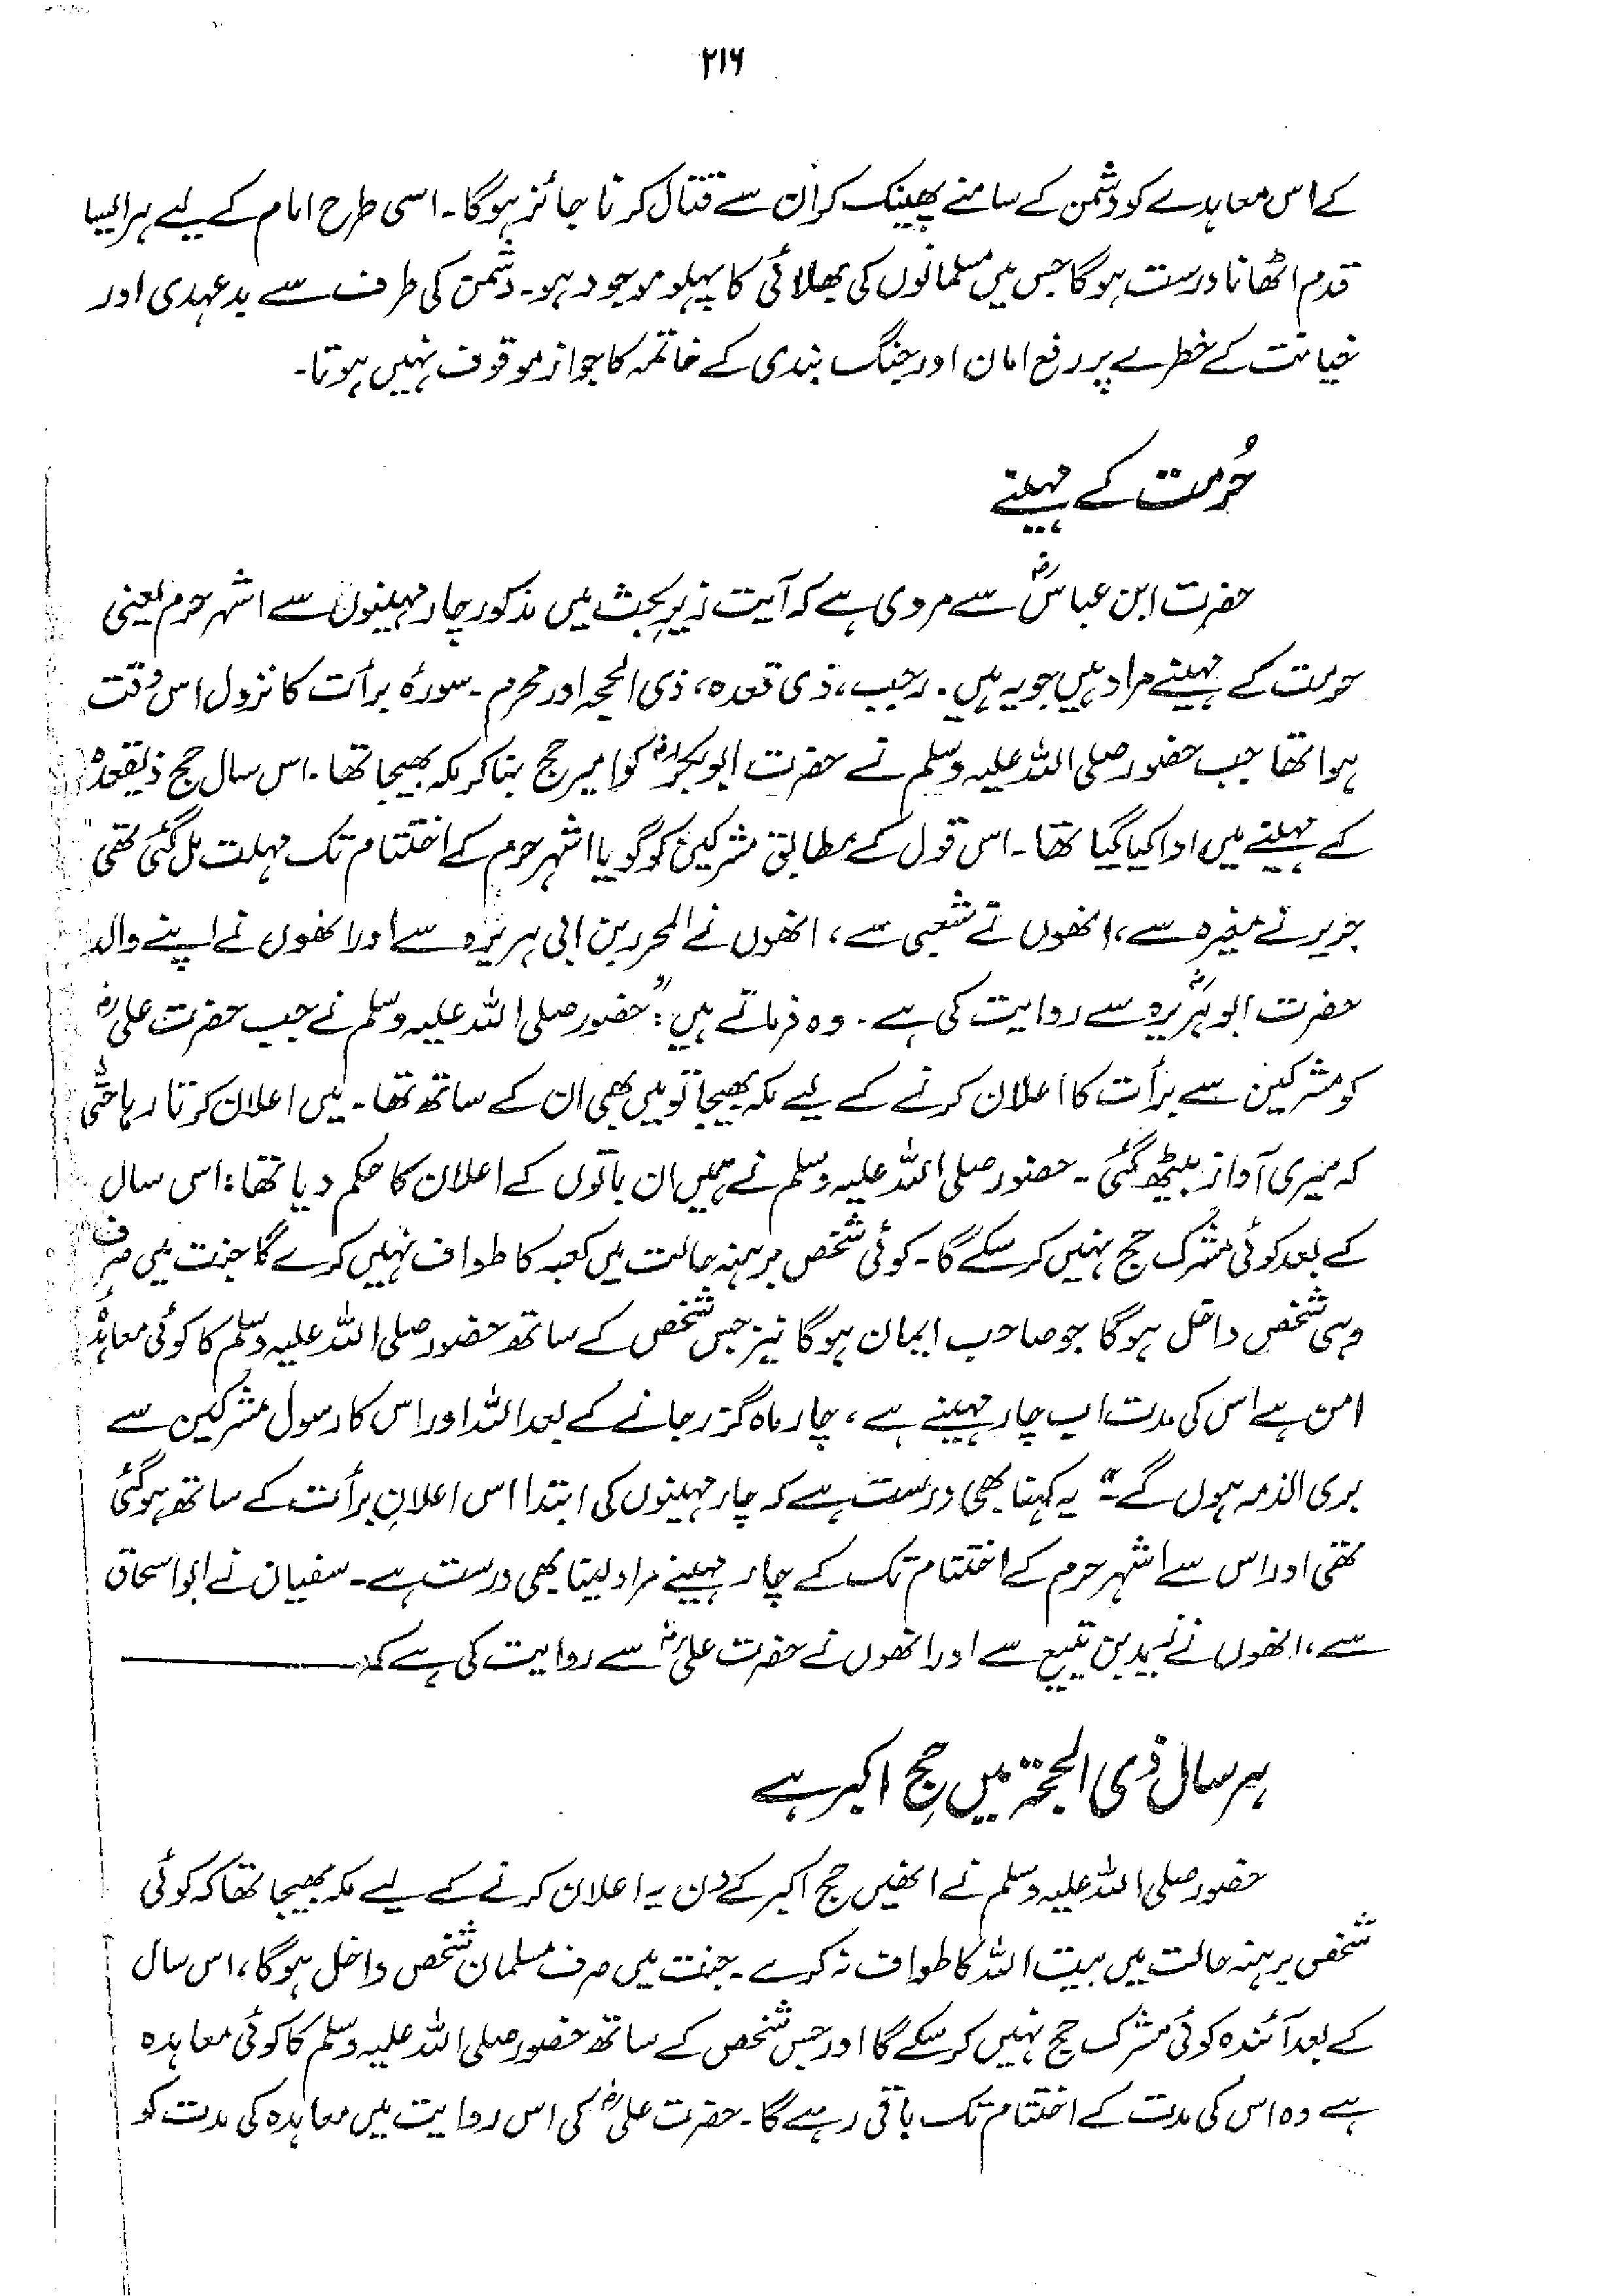 ۲۱۶
کے اس معاہدے کو دشمن کے سامنے پھینک کر ان سے قتال کرنا جائز ہوگا۔ اسی طرح امام کے لیے ہر ایسا
قدم اٹھانا درست ہوگا جس میں مسلمانوں کی بھلائی کا پہلو موجود ہو۔ دشمن کی طرف سے بدعہدی اور
خیانت کے خطرے پر رفع امان اور جنگ بندی کے خاتمہ کا جواز موقوف نہیں ہوتا۔
حُرمت کے مہینے
حضرت ابن عباسؓ سے مروی ہے کہ آیت زیرِ بحث میں مذکور چار مہینوں سے اشہر حرم یعنی
حرمت کے مہینے مراد ہیں جو یہ ہیں۔ رجب، ذی قعدہ، ذی الحجہ اور محرم۔ سورۂ برأت کا نزول اس وقت
ہوا تھا جب حضور صلی اللہ علیہ وسلم نے حضرت ابوبکرؓ کو امیر حج بنا کر مکہ بھیجا تھا۔ اس سال حج ذیقعدہ
کے مہینے میں ادا کیا گیا تھا۔ اس قول کے مطابق مشرکین کو گویا اشہر حرم کے اختتام تک مہلت مل گئی تھی
جریر نے مغیرہ سے، انھوں نے شعبی سے، انھوں نے المحرر بن ابی ہریرہ سے اور انھوں نے اپنے والد
حضرت ابوہریرہؓ سے روایت کی ہے۔ وہ فرماتے ہیں: "حضور صلی اللہ علیہ وسلم نے جب حضرت علیؓ
کو مشرکین سے برأت کا اعلان کرنے کے لیے مکہ بھیجا تو میں بھی ان کے ساتھ تھا۔ میں اعلان کرتا رہا حتٰی
کہ میری آواز بیٹھ گئی۔ حضور صلی اللہ علیہ وسلم نے ہمیں ان باتوں کے اعلان کا حکم دیا تھا: اس سال
کے بعد کوئی مشرک حج نہیں کر سکے گا۔ کوئی شخص برہنہ حالت میں کعبہ کا طواف نہیں کرے گا جنت میں صرف
وہی شخص داخل ہوگا جو صاحب ایمان ہوگا نیز جس شخص کے ساتھ حضور صلی اللہ علیہ وسلم کا کوئی معاہدۂ
امن ہے اس کی مدت اب چار مہینے ہے، چار ماہ گزر جانے کے بعد اللہ اور اس کا رسول مشرکین سے
بری الذمہ ہوں گے۔" یہ کہنا بھی درست ہے کہ چار مہینوں کی ابتدا اس اعلانِ برأت کے ساتھ ہوگئی
تھی اور اس سے اشہر حرم کے اختتام تک کے چار مہینے مراد لینا بھی درست ہے۔ سفیان نے ابو اسحاق
سے، انھوں نے زید بن یثیع سے اور انھوں نے حضرت علیؓ سے روایت کی ہے کہ
ہر سال ذی الحجۃ میں حجِ اکبر ہے
حضور صلی اللہ علیہ وسلم نے انھیں حج اکبر کے دن یہ اعلان کرنے کے لیے مکہ بھیجا تھا کہ کوئی
شخص برہنہ حالت میں بیت اللہ کا طواف نہ کرے۔ جنت میں صرف مسلمان شخص داخل ہوگا، اس سال
کے بعد آئندہ کوئی مشرک حج نہیں کر سکے گا اور جس شخص کے ساتھ حضور صلی اللہ علیہ وسلم کا کوئی معاہدہ
ہے وہ اس کی مدت کے اختتام تک باقی رہے گا۔ حضرت علیؓ کی اس روایت میں معاہدہ کی مدت کو